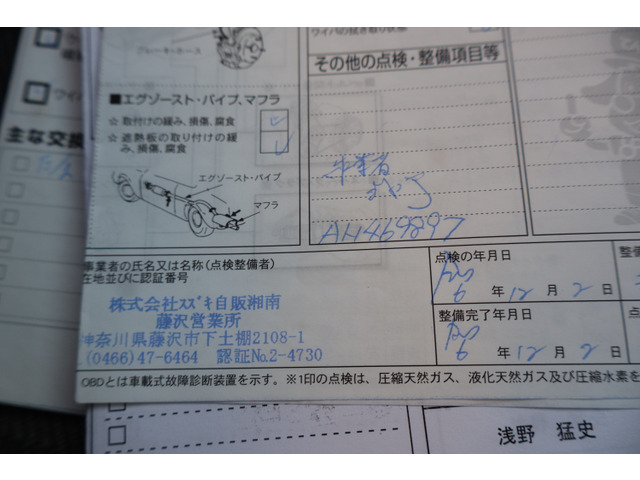 ブレーキ・ホース
ワイパの拭き取り状態
その他の点検・整備項目等
ワイパ
■エグゾースト・パイプ、マフラ
☆ 取付けの緩み、損傷、腐食
☆ 遮熱板の取り付けの緩み、損傷、腐食
主な交換
エグゾースト・パイプ
マフラ
AH469297
事業者の氏名又は名称(点検整備者)
在地並びに認証番号
株式会社ｽｽﾞｷ自販湘南
藤沢営業所
神奈川県藤沢市下土棚2108-1
(0466)47-6464 認証No.2-4730
点検の年月日
6 年 12 月 2 日
整備完了年月日
6 年 12 月 2 日
OBDとは車載式故障診断装置を示す。※1印の点検は、圧縮天然ガス、液化天然ガス及び圧縮水素を
浅野 猛史